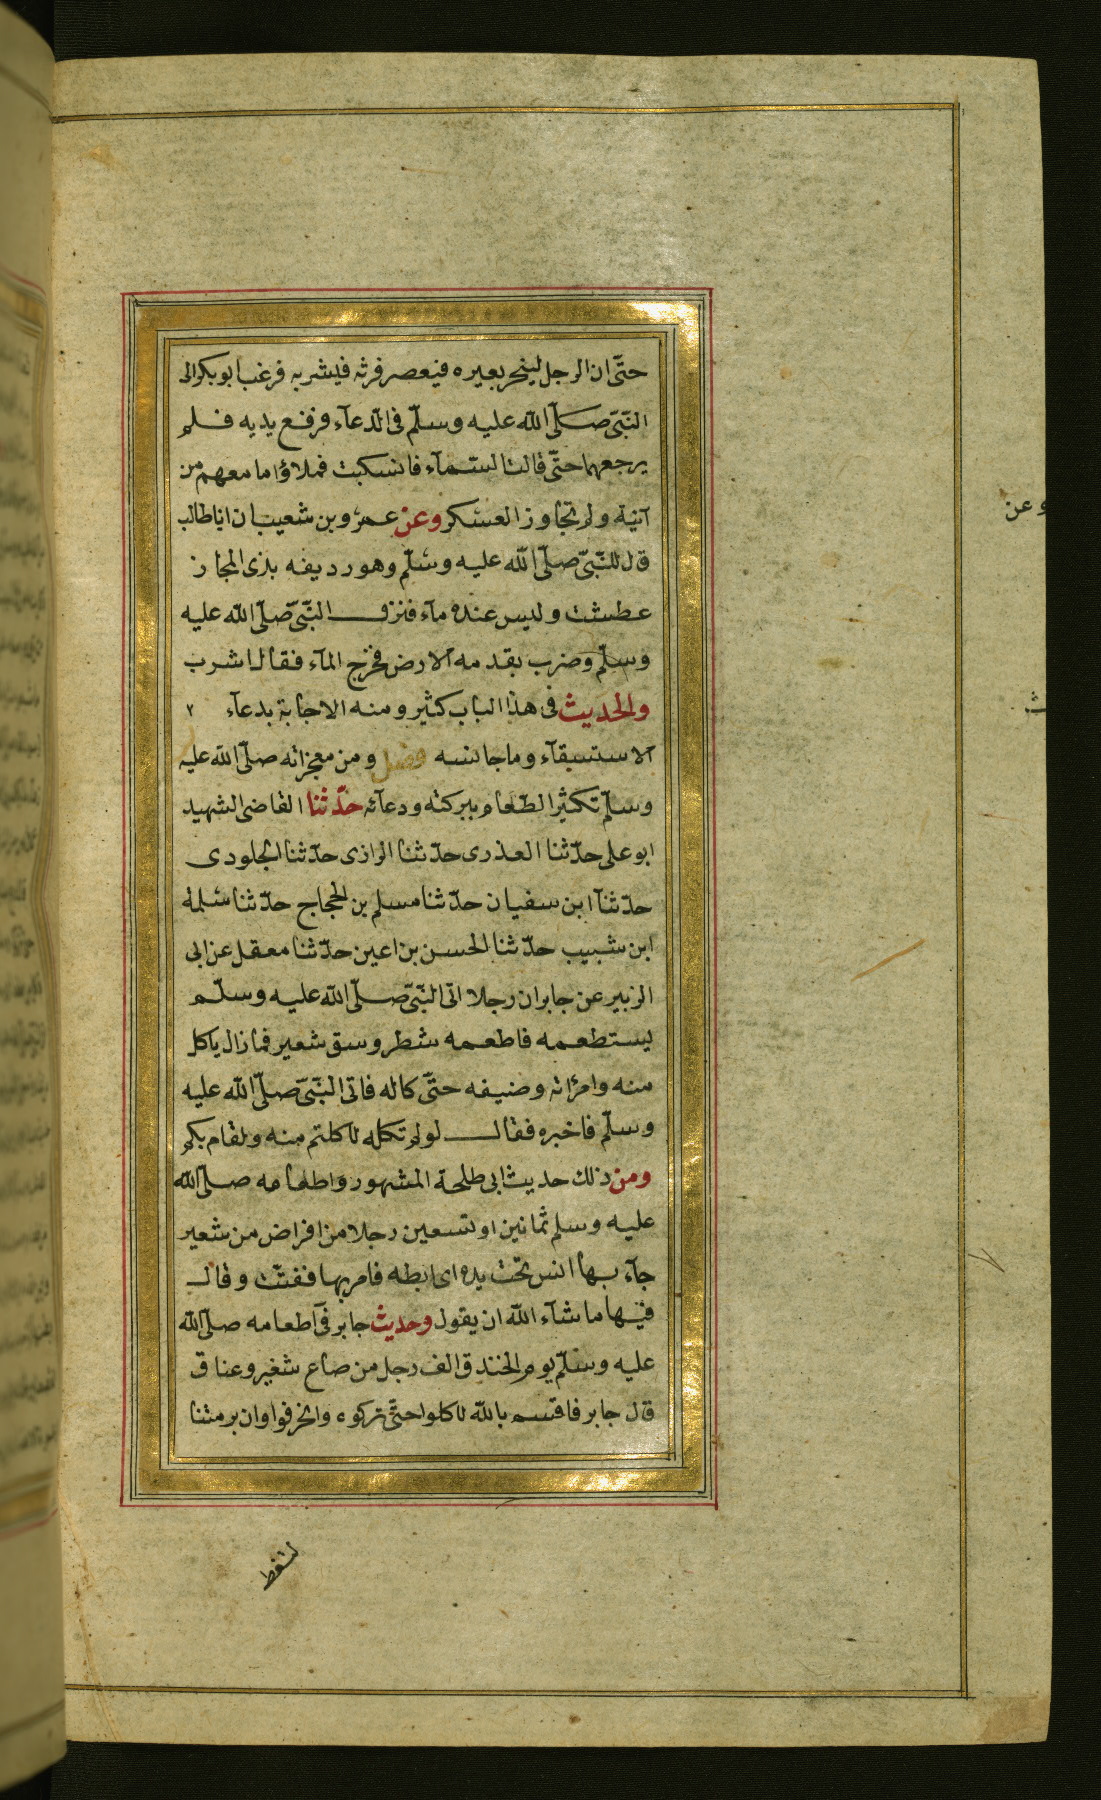 حتّى ان الرجل لينحر بعيره فيعصر فرثه فيشربه فرغب ابو بكر الى
النّبىّ صلّى الله عليه وسلّم فى الدّعآء فرفع يديه فلم
يرجعهما حتّى قالت السّمآء فانسكبت فملاؤا ما معهم من
آنية ولم تجاوز العسكر وعن عمرو بن شعيب ان ابا طالب
قال للنّبىّ صلّى الله عليه وسلّم وهو رديفه بذى المجاز
عطشت وليس عنده مآء فنزل النّبىّ صلّى الله عليه
وسلّم وضرب بقدمه الارض فخرج المآء فقال اشرب
والحديث فى هذا الباب كثير ومنه الاجابة بدعآء ٢
الاستسقآء وما جانسه فصل ومن معجزاته صلّى الله عليه
وسلّم تكثير الطّعام ببركته ودعآئه حدّثنا القاضى الشهيد
ابو على حدّثنا العذرى حدّثنا الرازى حدّثنا الجلودى
حدّثنا ابن سفيان حدّثنا مسلم بن الحجاج حدّثنا سلمة
ابن شبيب حدّثنا الحسن بن اعين حدّثنا معقل عن ابى
الزبير عن جابر ان رجلا اتى النّبىّ صلّى الله عليه وسلّم
يستطعمه فاطعمه شطر وسق شعير فما زال ياكل
منه وامرأته وضيفه حتّى كاله فاتى النّبىّ صلّى الله عليه
وسلّم فاخبره فقال لو لم تكله لاكلتم منه ولقام بكم
ومن ذلك حديث ابى طلحة المشهور واطعامه صلّى الله
عليه وسلم ثمانين او تسعين رجلا من اقراص من شعير
جآء بها انس تحت يده اى ابطه فامر بها ففتّت وقال
فيها ما شآء الله ان يقول وحديث جابر فى اطعامه صلّى الله
عليه وسلّم يوم الخندق الف رجل من صاع شعير وعناق
قال جابر فاقسم بالله لاكلوا حتّى تركوه وانحرفوا وان برمتنا
لتغط
وعن